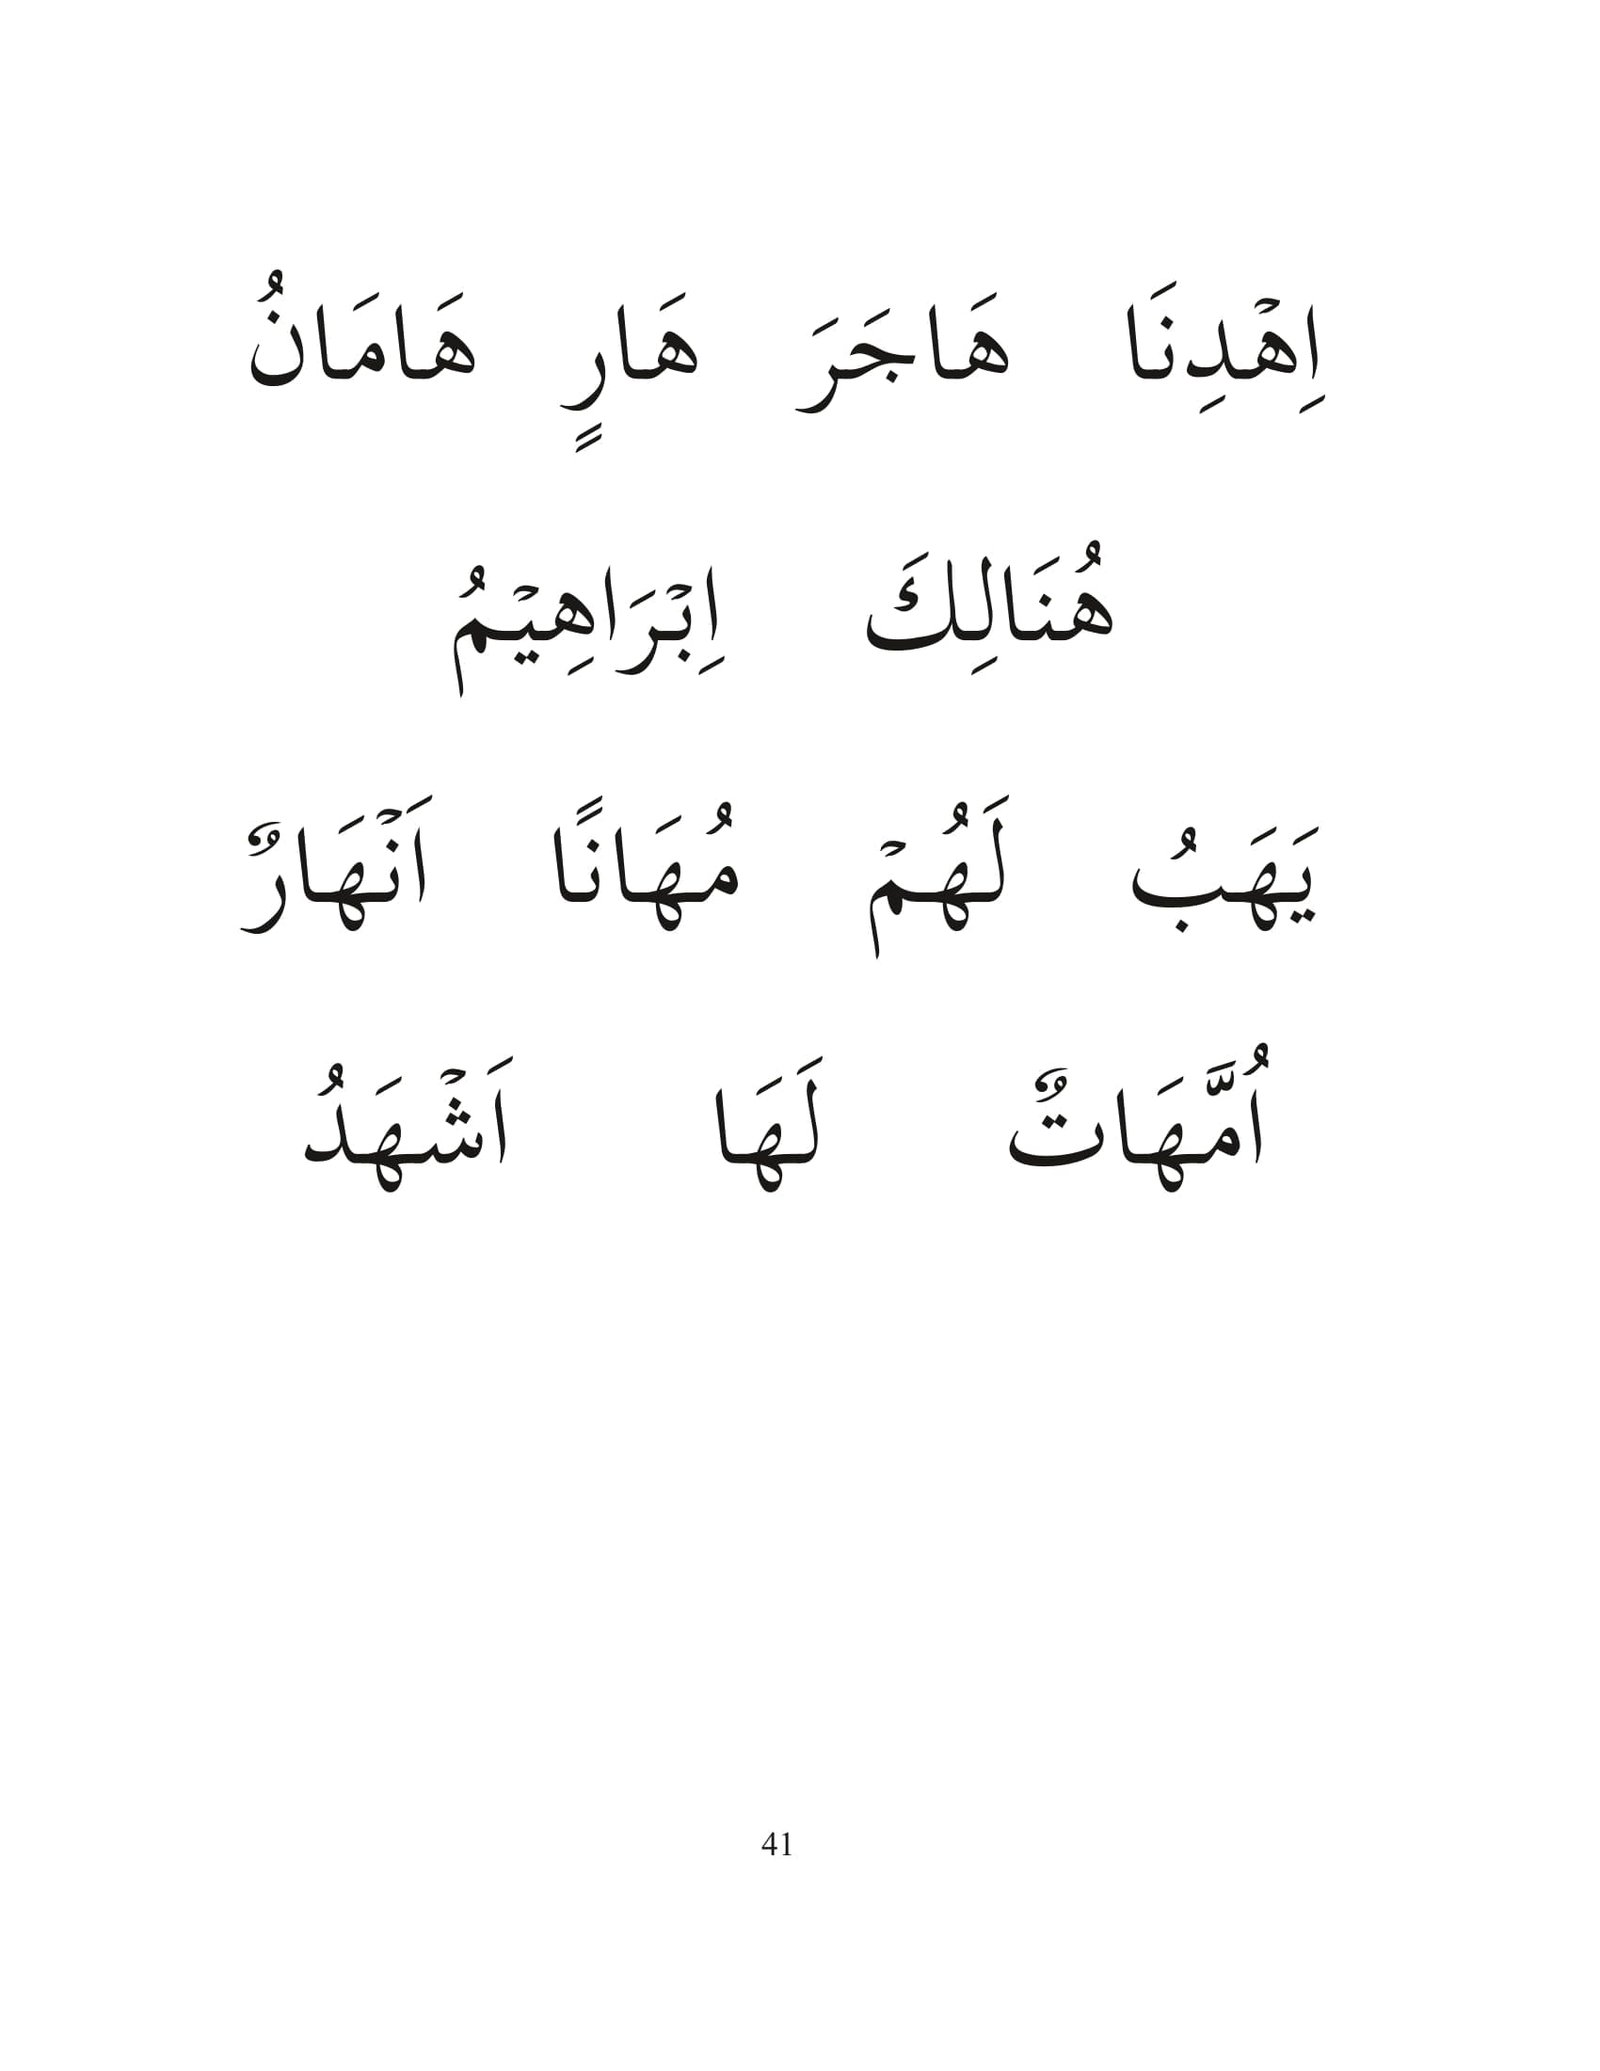 اِهْدِنَا هَاجَرَ هَارٍ هَامَانُ
هُنَالِكَ اِبْرَاهِيْمُ
يَهَبُ لَهُمْ مُهَانًا اَنْهَارٌ
اُمَّهَاتٌ لَهَا اَشْهَدُ
41